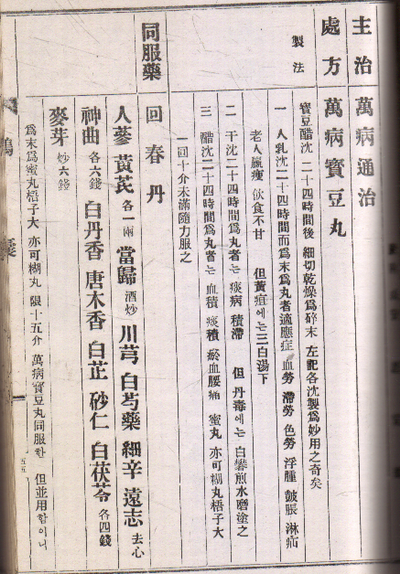 主治 萬病通治
處方 萬病寶豆丸
製法
寶豆醋沈 二十四時間後 細切乾燥爲碎末 左記各沈製爲妙用之奇矣
一 人乳沈二十四時間而爲末爲丸者適應症 血勞 滯勞 色勞 浮腫 皷脹 淋疝
老人羸瘦 飮食不甘 但黃疸에는三白湯下
二 干沈二十四時間爲丸者는 痰病 積滯 但丹毒에는白礬煎水磨塗之
三 醋沈二十四時間爲丸者는 血積 痰積 瘀血腰痛 蜜丸 亦可糊丸梧子大
一回十介未滿隨力服之
同服藥 回春丹
人蔘 黃芪 各一兩 當歸 酒炒 川芎 白芍藥 細辛 遠志 去心
神曲 各六錢 白丹香 唐木香 白芷 砂仁 白茯苓 各四錢
麥芽 炒六錢
爲末爲蜜丸梧子大 亦可糊丸 限十五介 萬病寶豆丸同服한 但並用함이니
五五